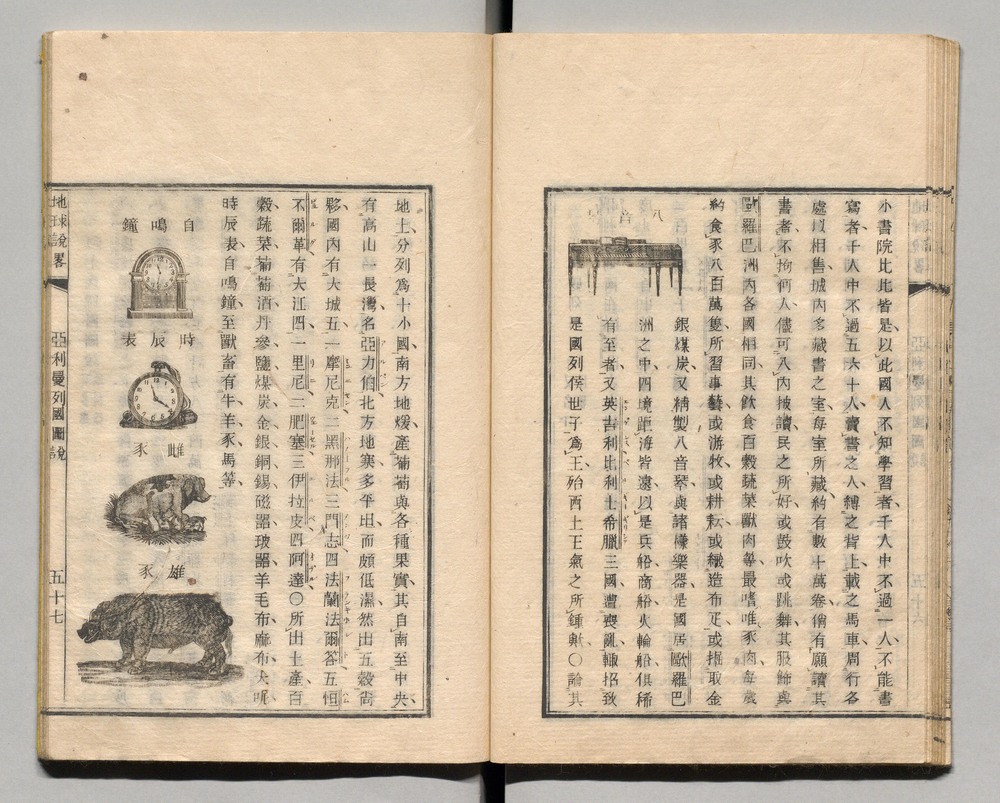 小書院比比皆是以此國人不知學習者千人中不過一人不能書
寫者千人中不過五六十人賣書之人縛之背上載之馬車周行各
處以相售城內多藏書之室每室所藏約有數十萬卷倘有願讀其
書者不拘何人儘可入內披讀民之所好或鼓吹或跳舞其服飾與
歐羅巴洲內各國相同其飲食百穀蔬菜獸肉等最嗜唯豕肉每歲
約食豕八百萬隻所習事藝或游牧或耕耘或織造布疋或掘取金
銀煤炭又精製八音琴與諸樣樂器是國居歐羅巴
洲之中四境距海皆遠以是兵船商船火輪船俱稀
有至者又英吉利比利士希臘三國遭喪亂輒招致
是國列侯世子為王殆西土王氣之所鍾歟○論其
八音
地土分列為十小國南方地煖產葡萄與各種果實其自南至中央
有高山一長灣名亞力伯北方地寒多平坦而頗低濕然出五穀尚
夥國內有大城五一摩尼克二黑邢法三門志四法蘭法爾畧五恒
不爾革有大江四一里尼二肥塞三伊拉皮四阿達○所出土產百
穀蔬菜葡萄酒丹參鹽煤炭金銀銅錫磁器玻器羊毛布麻布大呢
時辰表自鳴鐘至獸畜有牛羊豕馬等
自鳴鐘
時辰表
雌豕
雄豕
地球說畧
亞利曼列國圖說
五十七